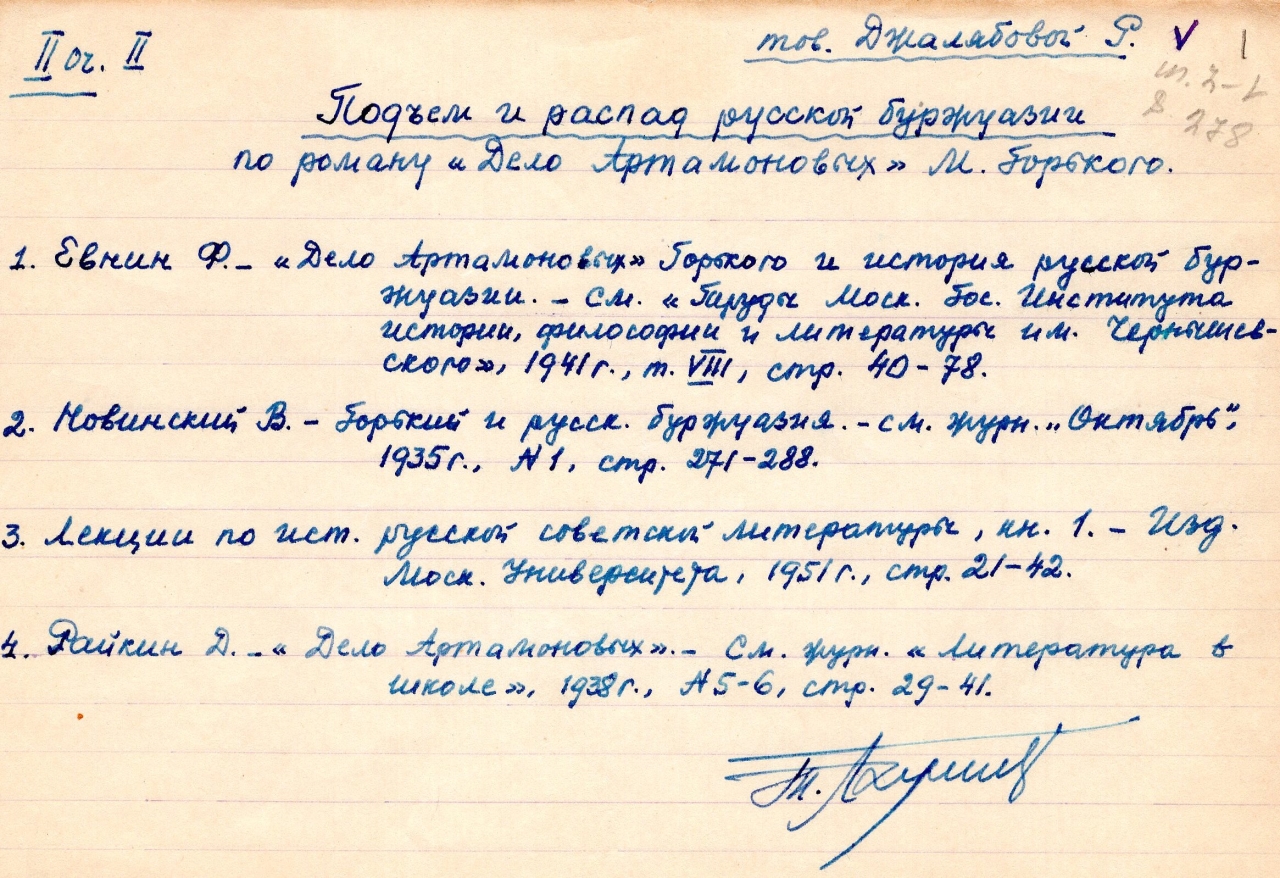 II оч. II
тов. Джалябовой Р. V 1
278
Подъем и распад русской буржуазии
по роману «Дело Артамоновых» М. Горького.
1. Евнин Ф. – «Дело Артамоновых» Горького и история русской бур-
жуазии. – См. «Труды Моск. Гос. Института
истории, философии и литературы им. Чернышев-
ского», 1941 г., т. VIII, стр. 40–78.
2. Новинский В. – Горький и русск. буржуазия. – см. журн. „Октябрь“,
1935 г., № 1, стр. 271–288.
3. Лекции по ист. русской советской литературы, кн. 1. – Изд.
Моск. Университета, 1951 г., стр. 21–42.
4. Райкин Д. – «Дело Артамоновых». – См. журн. «Литература в
школе», 1938 г., № 5–6, стр. 29–41.